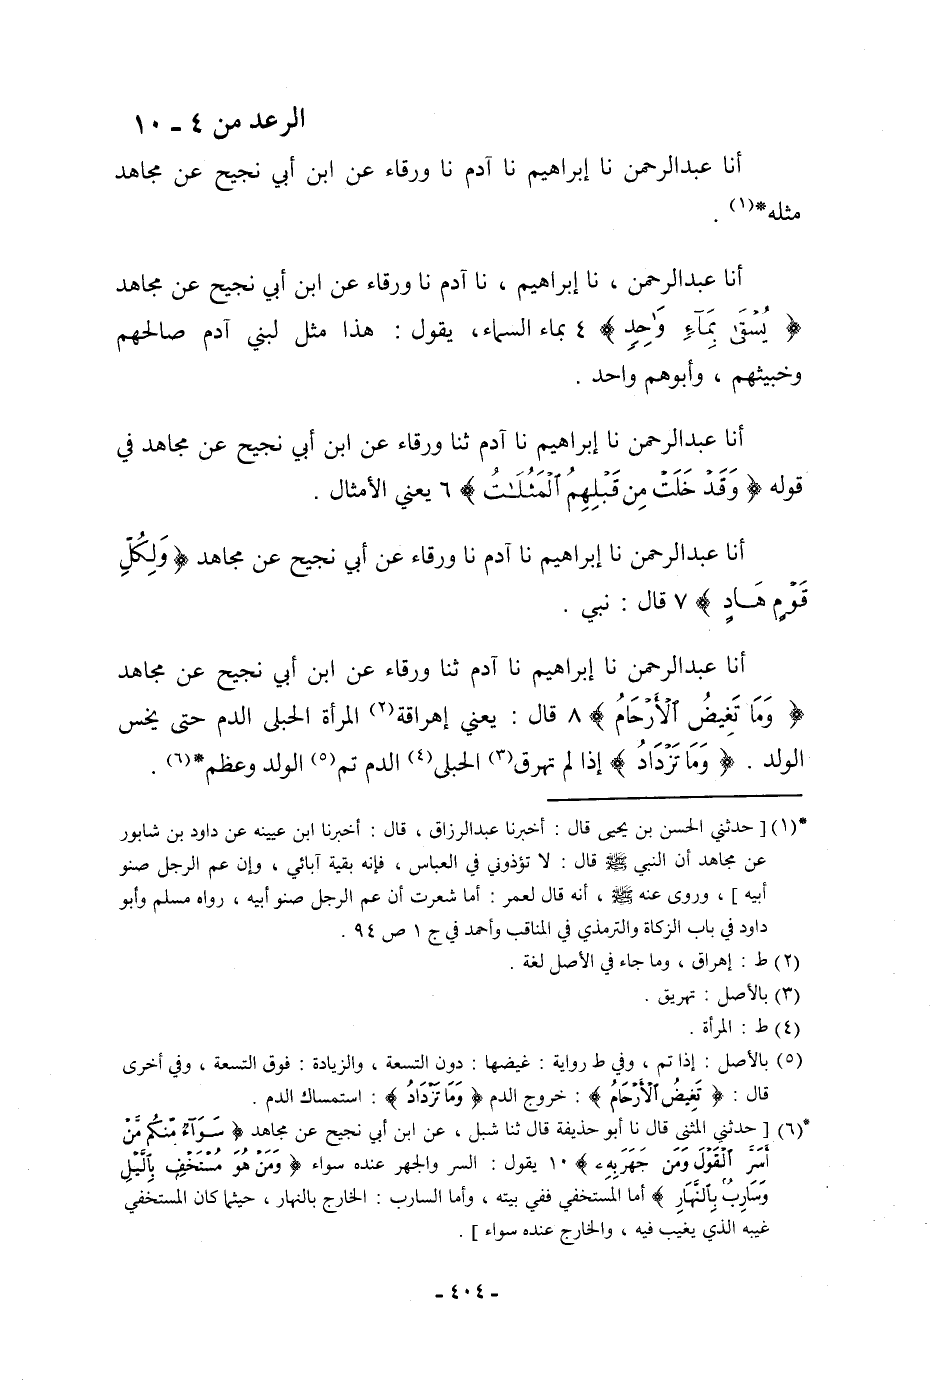 الرعد من ٤ ـ ١٠
أنا عبدالرحمن نا إبراهيم نا آدم نا ورقاء عن ابن أبي نجيح عن مجاهد
مثله*(١) .
أنا عبدالرحمن ، نا إبراهيم ، نا آدم نا ورقاء عن ابن أبي نجيح عن مجاهد
﴿ يُسْقَىٰ بِمَآءٍ وَٰحِدٍ ﴾ ٤ بماء السماء، يقول : هذا مثل لبني آدم صالحهم
وخبيثهم ، وأبوهم واحد .
أنا عبدالرحمن نا إبراهيم نا آدم ثنا ورقاء عن ابن أبي نجيح عن مجاهد في
قوله ﴿ وَقَدْ خَلَتْ مِن قَبْلِهِمُ ٱلْمَثُلَٰتُ ﴾ ٦ يعني الأمثال .
أنا عبدالرحمن نا إبراهيم نا آدم نا ورقاء عن أبي نجيح عن مجاهد ﴿ وَلِكُلِّ
قَوْمٍ هَادٍ ﴾ ٧ قال : نبي .
أنا عبدالرحمن نا إبراهيم نا آدم ثنا ورقاء عن ابن أبي نجيح عن مجاهد
﴿ وَمَا تَغِيضُ ٱلْأَرْحَامُ ﴾ ٨ قال : يعني إهراقة(٢) المرأة الحبلى الدم حتى يخس
الولد . ﴿ وَمَا تَزْدَادُ ﴾ إذا لم تهرق(٣) الحبلى(٤) الدم تم(٥) الولد وعظم*(٦) .
*(١) [ حدثني الحسن بن يحيى قال : أخبرنا عبدالرزاق ، قال : أخبرنا ابن عيينه عن داود بن شابور
عن مجاهد أن النبي ﷺ قال : لا تؤذوني في العباس ، فإنه بقية آبائي ، وإن عم الرجل صنو
أبيه ] ، وروى عنه ﷺ ، أنه قال لعمر : أما شعرت أن عم الرجل صنو أبيه ، رواه مسلم وأبو
داود في باب الزكاة والترمذي في المناقب وأحمد في ج ١ ص ٩٤ .
(٢) ط : إهراق ، وما جاء في الأصل لغة .
(٣) بالأصل : تهريق .
(٤) ط : المرأة .
(٥) بالأصل : إذا تم ، وفي ط رواية : غيضها : دون التسعة ، والزيادة : فوق التسعة ، وفي أخرى
قال : ﴿ تَغِيضُ ٱلْأَرْحَامُ ﴾ : خروج الدم ﴿ وَمَا تَزْدَادُ ﴾ : استمساك الدم .
*(٦) [ حدثني المثنى قال نا أبو حذيفة قال ثنا شبل ، عن ابن أبي نجيح عن مجاهد ﴿ سَوَآءٌ مِّنكُم مَّنْ
أَسَرَّ ٱلْقَوْلَ وَمَن جَهَرَ بِهِۦ ﴾ ١٠ يقول : السر والجهر عنده سواء ﴿ وَمَنْ هُوَ مُسْتَخْفٍ بِٱلَّيْلِ
وَسَارِبٌ بِٱلنَّهَارِ ﴾ أما المستخفي ففي بيته ، وأما السارب : الخارج بالنهار ، حيثما كان المستخفي
غيبه الذي يغيب فيه ، والخارج عنده سواء ] .
ـ ٤٠٤ ـ